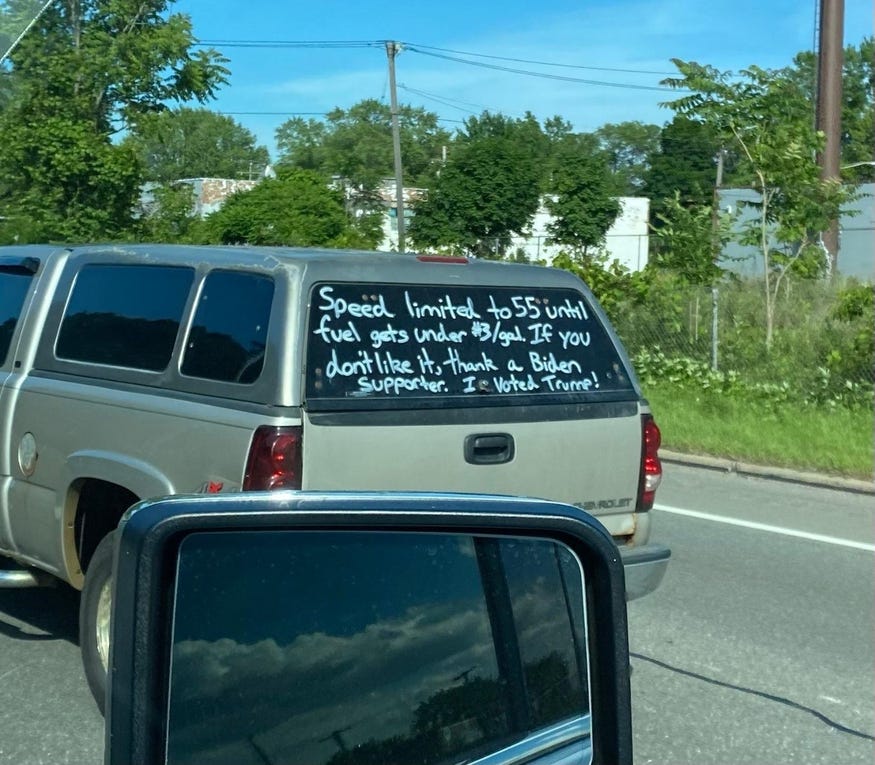 Speed limited to 55 until
fuel gets under $3/gal. If you
don't like it, thank a Biden
supporter. I Voted Trump!
CHEVROLET